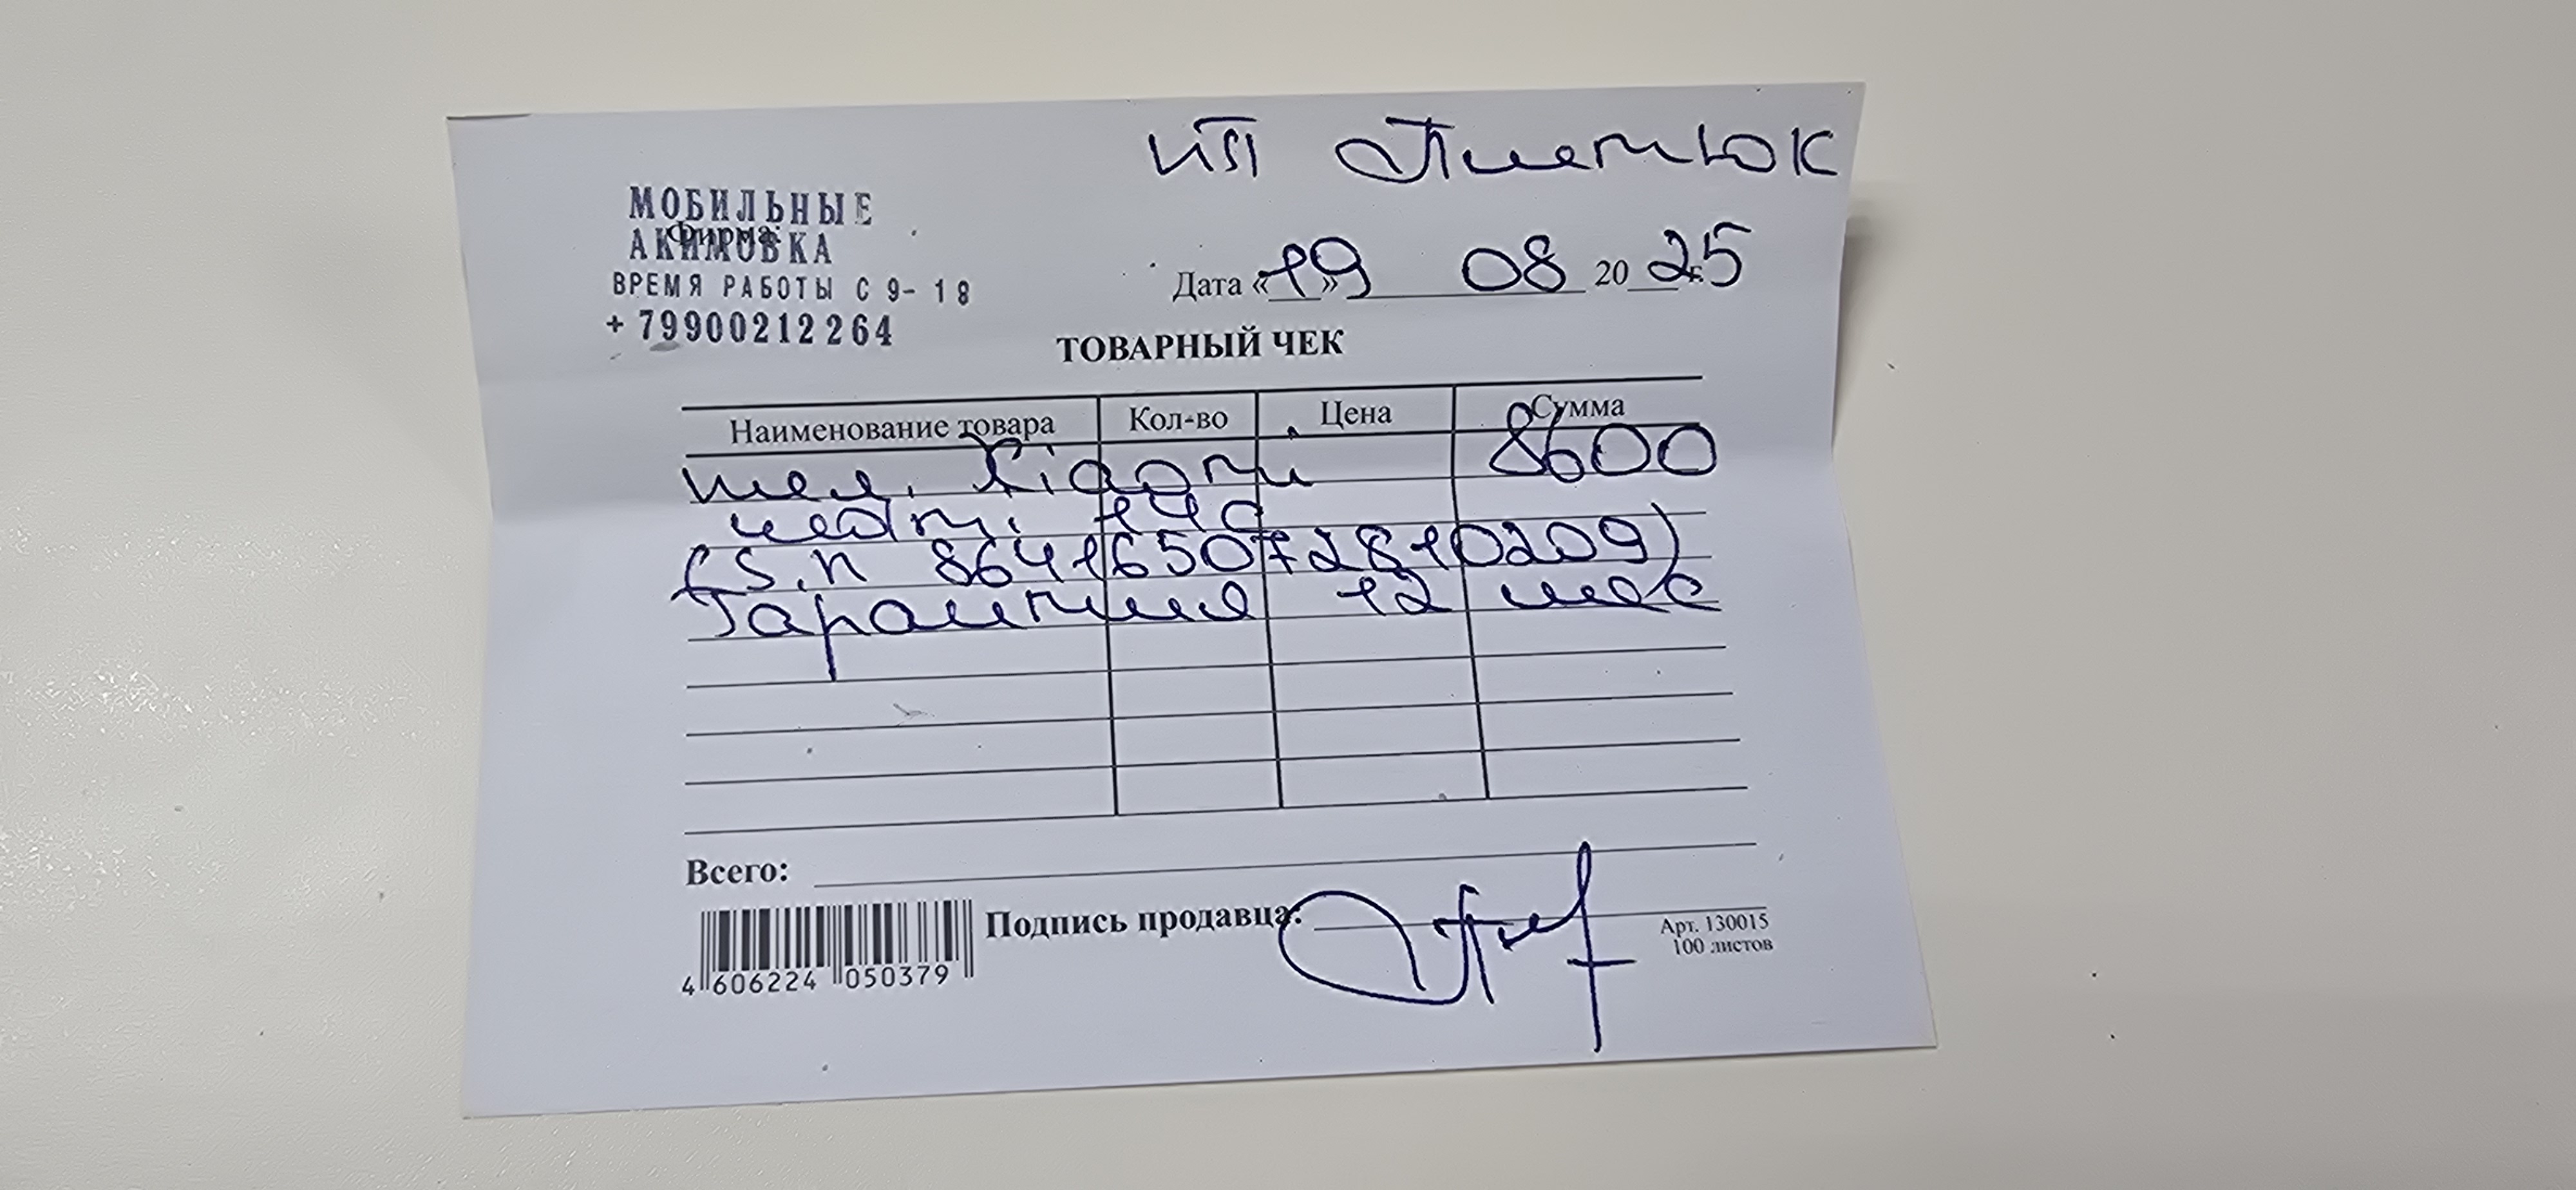 ИП Пиетюк
МОБИЛЬНЫЕ
Фирма:
АКИМОВКА
ВРЕМЯ РАБОТЫ С 9-18
+79900212264
Дата «19» 08 2025 г.
ТОВАРНЫЙ ЧЕК
Наименование товара Кол-во Цена Сумма
тел. Xiaomi 8600
redmi 14c
(S.n 864165072810209)
Гарантия 12 мес
Всего:
Подпись продавца:
Арт. 130015
100 листов
4 606224 050379